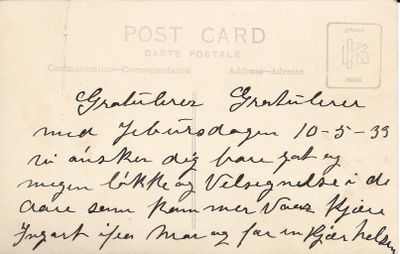 POST CARD
CARTE POSTALE
STAMP
HERE
Communication—Correspondance
Address—Adresse
Gratulerer Gratulerer
med Jebursdagen 10-5-33
vi ønsker dig bare gat og
megen løkke og Velsignelse i de
aare som kommer Vaar kjære
Ingart ifra mor og far en kjær helsen